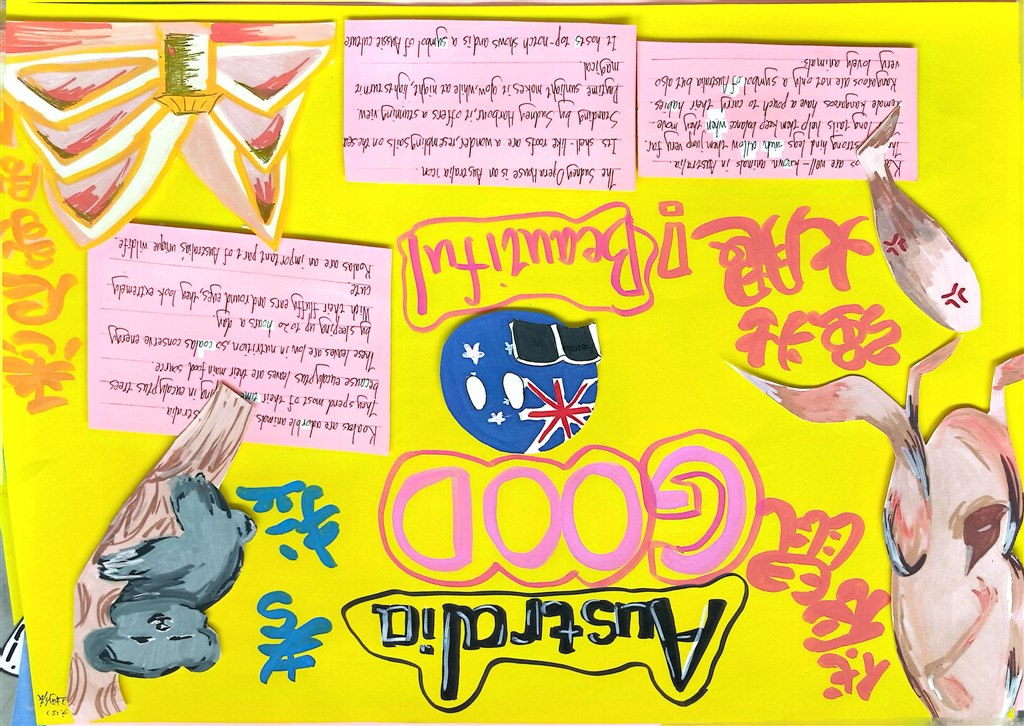 Australia
GOOD
Beautiful
考拉
强壮
大腿
are well-known animals in Australia
strong hind legs allow them jump very far,
long tails help them keep balance when they move
Female kangaroos have a pouch to carry their babies
Kangaroos are not only a symbol of Australia but also
very lovely animals
The Sydney Opera House is an Australia icon.
Its shell-like roofs are a wonder, resembling sails on the sea
Standing by Sydney Harbour, it offers a stunning view
Daytime sunlight makes it glow, while at night, lights turn it
magical
It hosts top-notch shows and is a symbol of Aussie culture
Koalas are adorable animals
They spend most of their time living in eucalyptus trees
because eucalyptus leaves are their main food source
These leaves are low in nutrition, so coalas conserve energy
by sleeping up to 20 hours a day.
With their fluffy ears and round eyes, they look extremely
cute
Koalas are an important part of Australias unique wildlife.